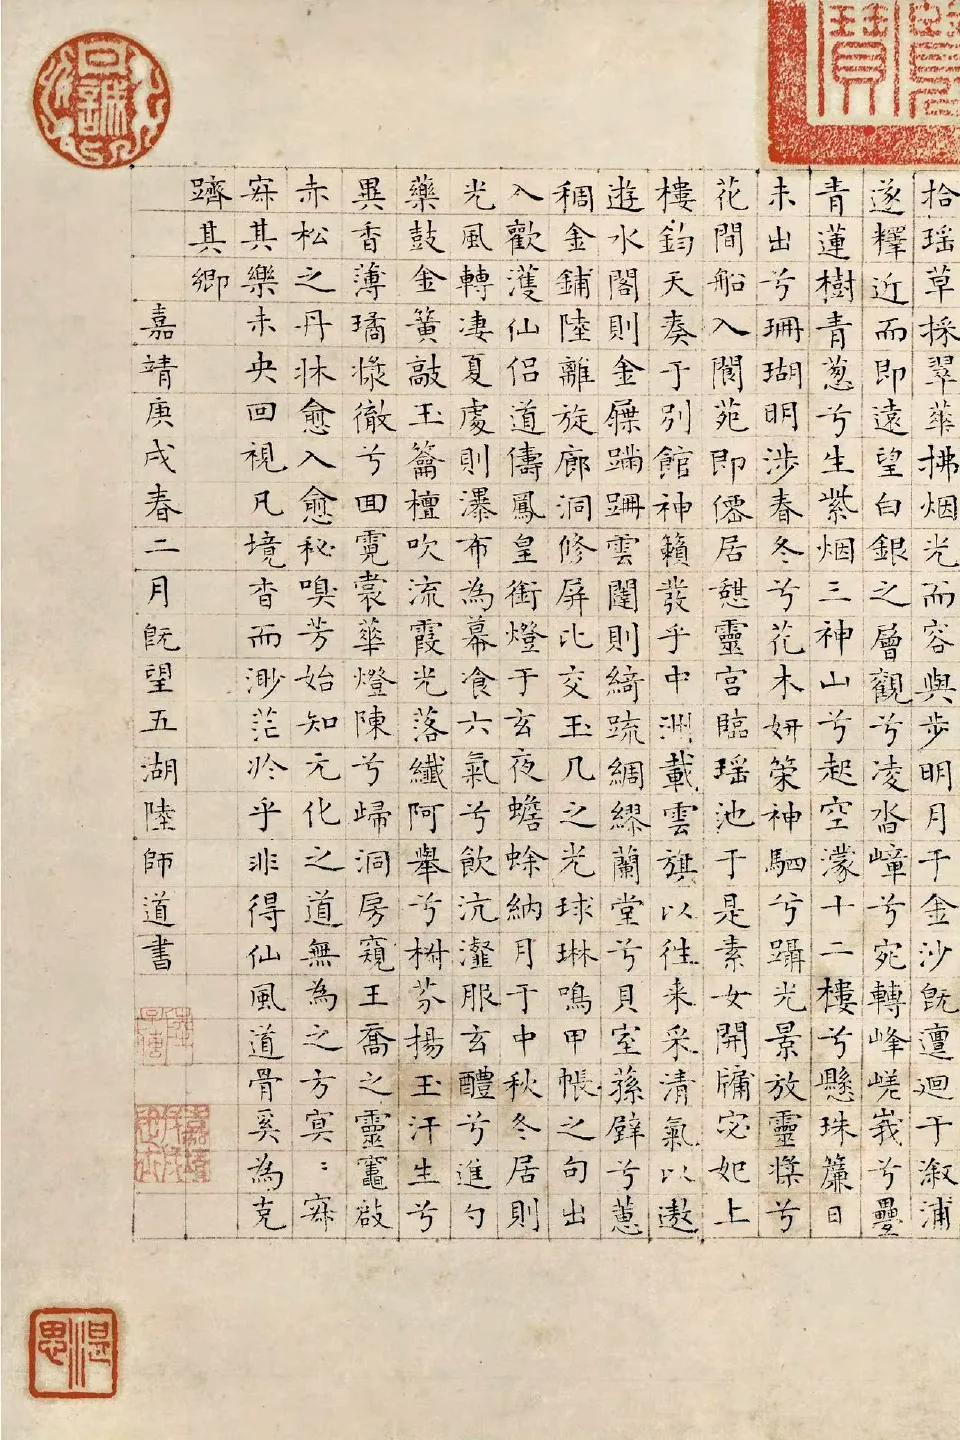 拾瑶草採翠華拂烟光而容與步明月于金沙既邅迴于溆浦
遂釋近而即遠望白銀之層觀兮凌沓嶂兮宛轉峰嵯峩兮疊
青蓮樹青葱兮生紫烟三神山兮起空濛十二樓兮懸珠簾日
未出兮珊瑚明涉春冬兮花木妍策神駟兮躡光景放靈槳兮
花間船入閬苑即僊居憇靈宫臨瑶池于是素女開牗宓妃上
樓鈞天奏于别館神籟發乎中洲載雲旗以往来采清氣以遨
遊水閣則金屧蹣跚雲闥則綺疏綢繆蘭堂兮貝室蓀壁兮蕙
稠金鋪陸離旋廊洞修屏比交玉几之光球琳鳴甲帳之句出
入歡濩仙侣道儔鳳皇銜燈于玄夜蟾蜍納月于中秋冬居則
光風轉凄夏處則瀑布為幕飡六氣兮飲沆瀣服玄醴兮進勺
藥鼓金簧敲玉籥檀吹流霞光落纖阿舉兮椒芬揚玉汗生兮
異香薄璚漿徹兮囬霓裳華燈陳兮歸洞房窺王喬之靈竈啟
赤松之丹牀愈入愈秘嗅芳始知元化之道無為之方寞：寂
寂其樂未央回視凡境杳而渺茫於乎非得仙風道骨奚為克
躋其鄉
嘉靖庚戌春二月既望五湖陸師道書
嘉靖